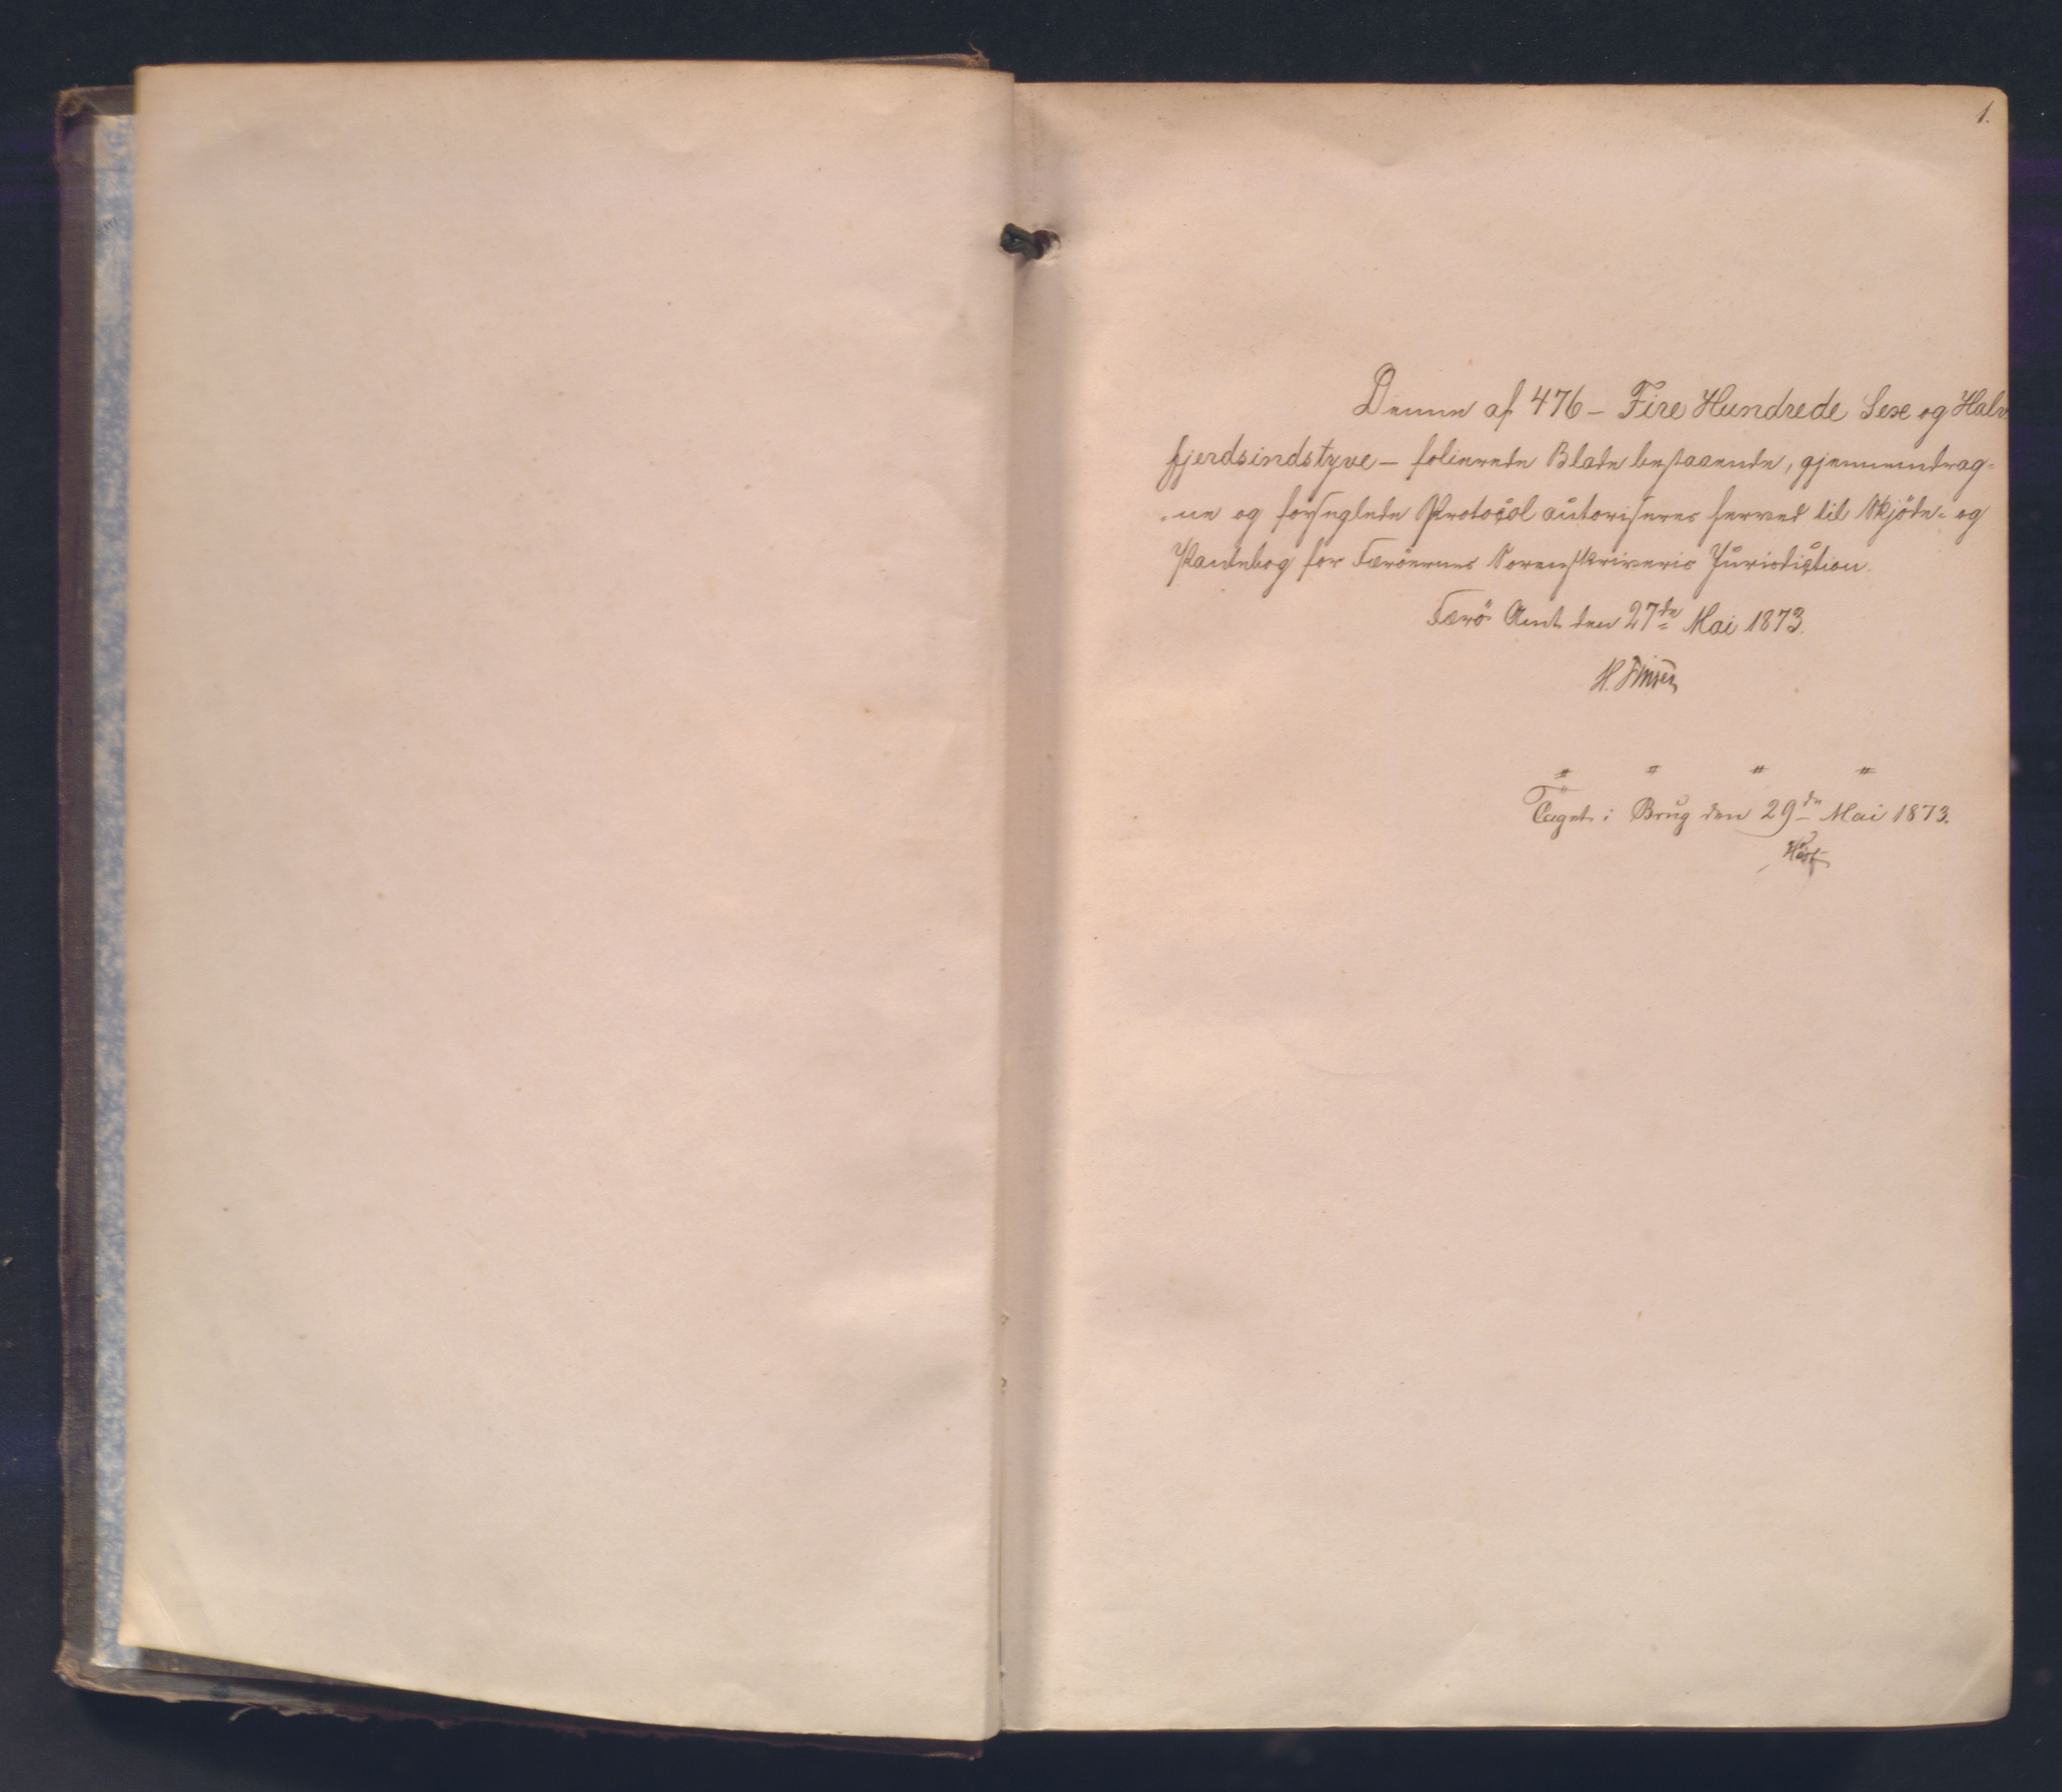 1.
Denne af 476 - Fire Hundrede Sex og Halv
fjerdsindstyve - folierede Blade bestaaende, gjennemdrag=
ne og forseglede Protocol autoriseres herved til Skjöde- og
Pantebog for Færöernes Sorenskriveris Jurisdiction.
Færö Amt den 27de Mai 1873.
H. Finsen
Taget i Brug den 29de Mai 1873.